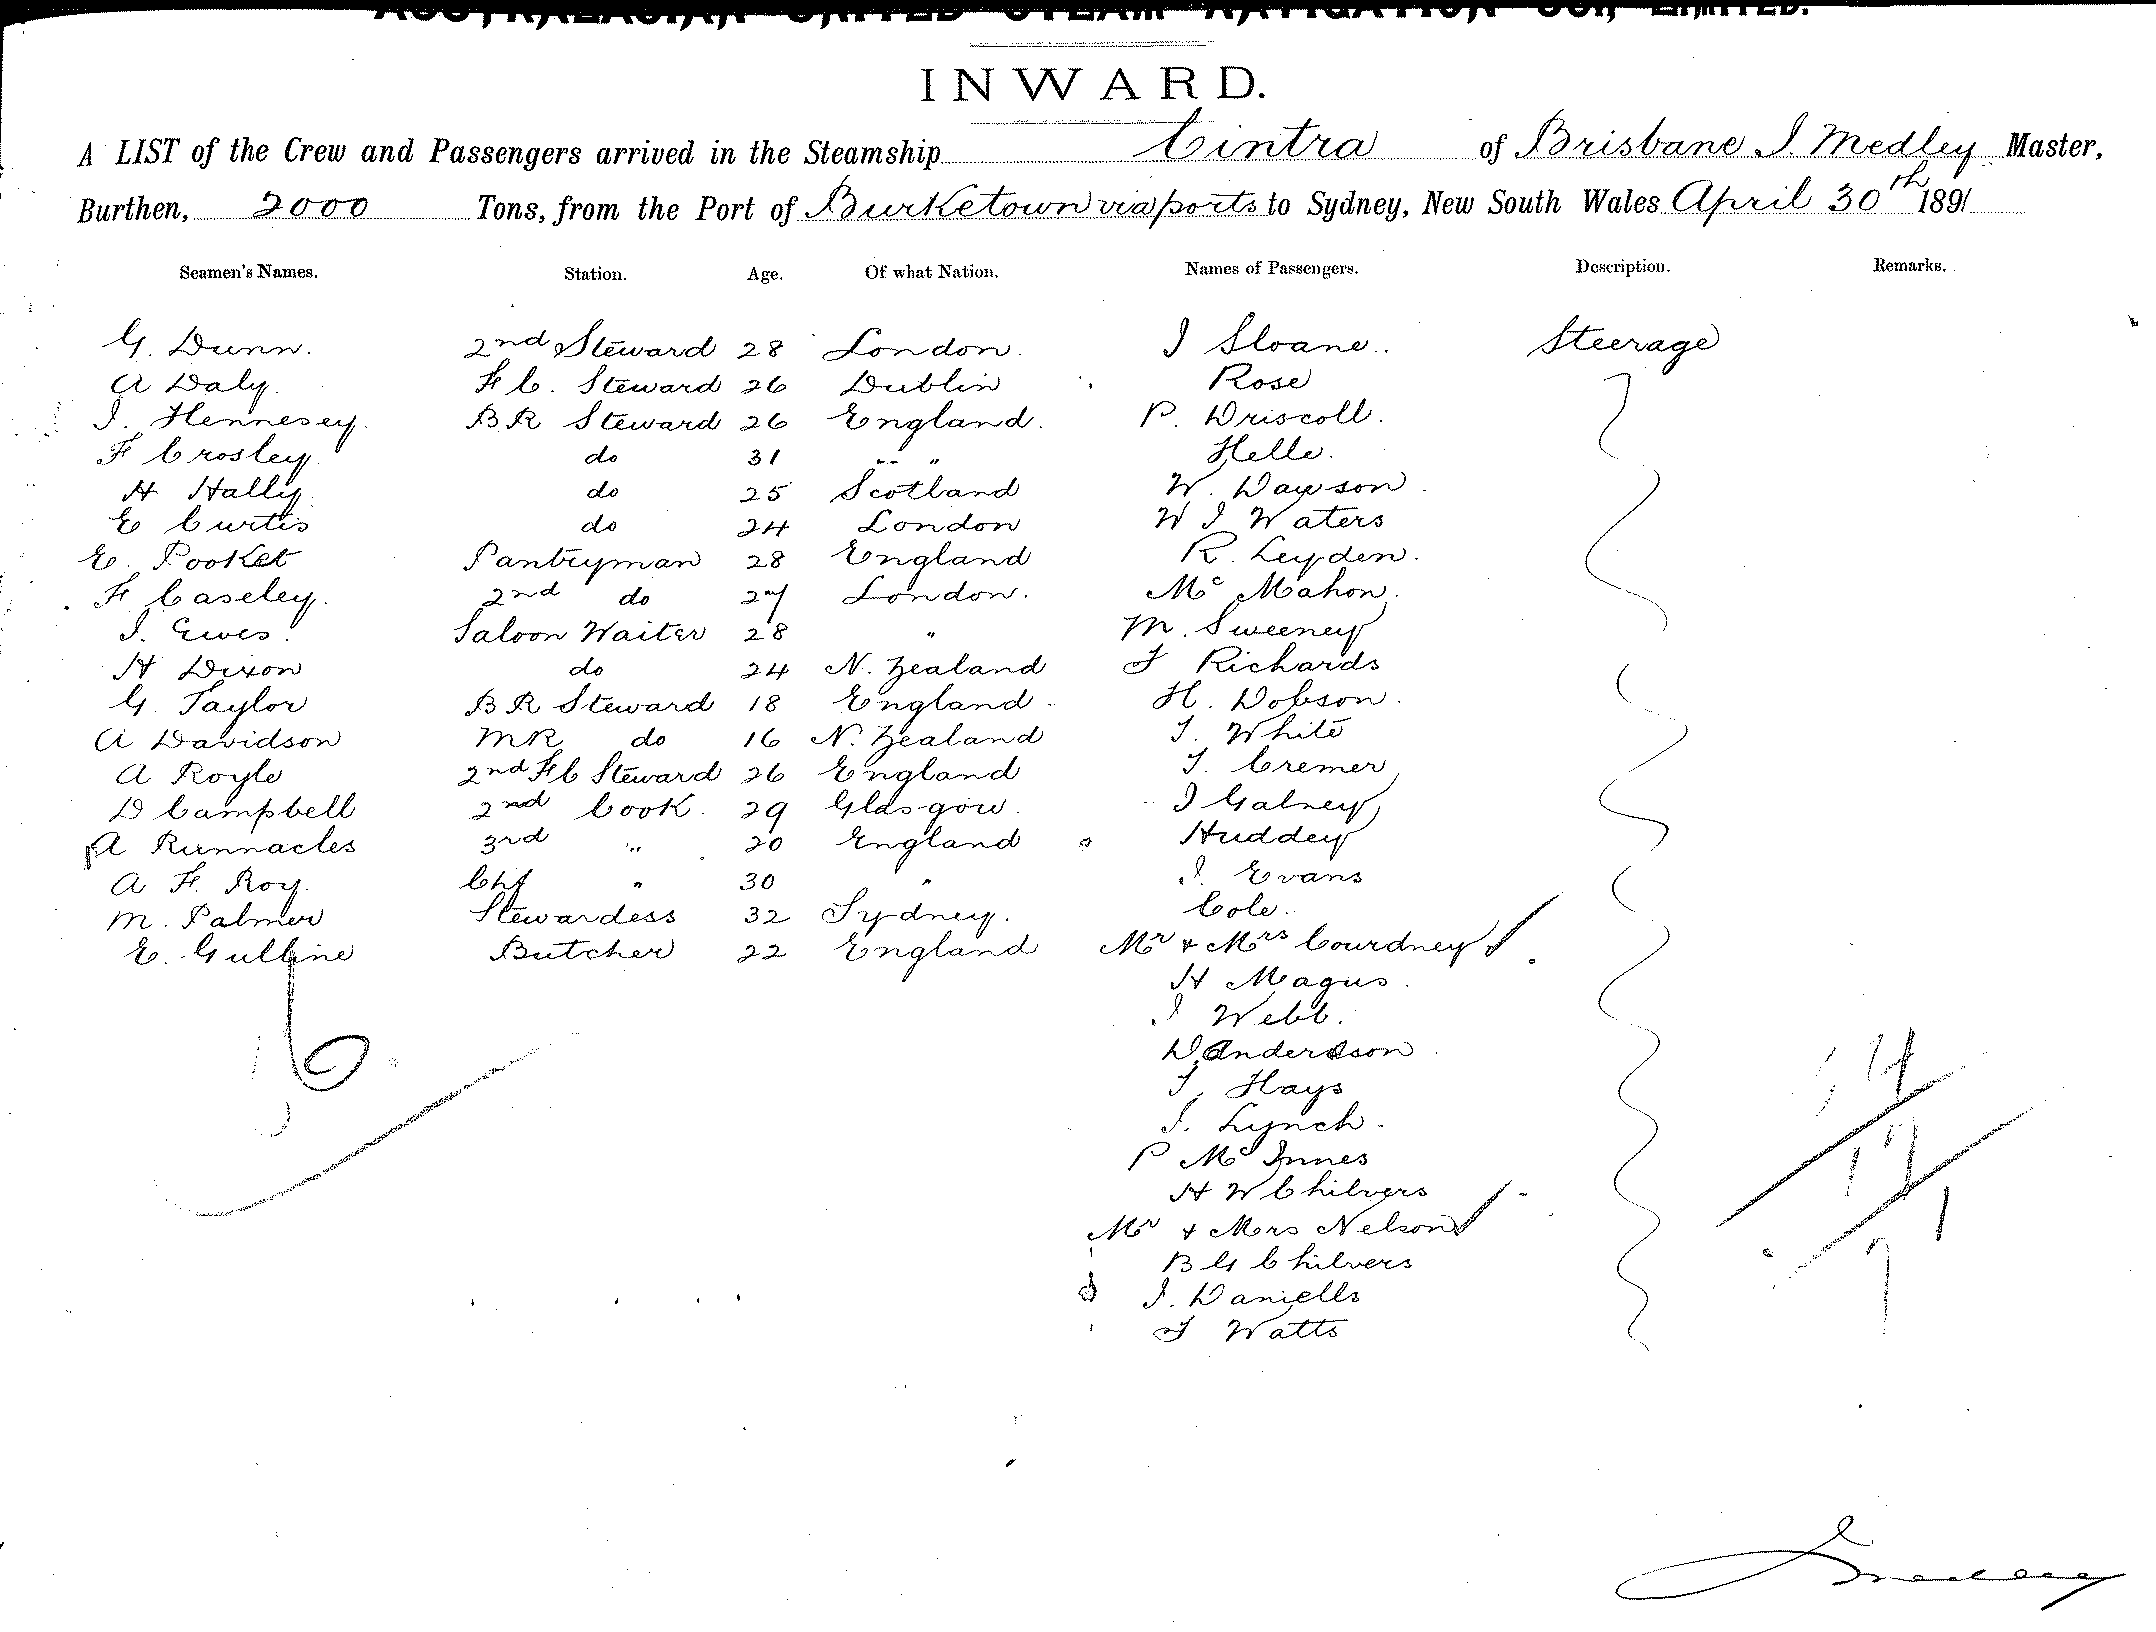 AUSTRALASIAN UNITED STEAM NAVIGATION COY., LIMITED.
INWARD.
A LIST of the Crew and Passengers arrived in the Steamship Cintra of Brisbane J. Medley Master,
Burthen, 2000 Tons, from the Port of Burketown via ports to Sydney, New South Wales April 30th 1891
Seamen's Names. Station. Age. Of what Nation. Names of Passengers. Description. Remarks.
G. Dunn. 2nd Steward 28 London. J Sloane. Steerage
A Daly. F C. Steward 26 Dublin Rose
J. Hennesey. B R Steward 26 England. P. Driscoll.
F Crosley. do 31 " " Helle.
H Hally. do 25 Scotland W. Dawson.
E Curtis do 24 London W J Waters
E. Pooket Pantryman 28 England R. Leyden.
F Caseley. 2nd do 27 London. Mc Mahon.
J. Ewes. Saloon Waiter 28 " M. Sweeney
H Dixon do 24 N. Zealand J Richards
G. Taylor B R Steward 18 England. H. Dobson.
A Davidson M R do 16 N. Zealand J. White
A Royle 2nd F C Steward 26 England J. Cremer
D Campbell 2nd Cook. 29 Glasgow. J Galney
A Runnacles 3rd " 20 England Huddey
A F. Roy. Chf " 30 " J. Evans
M. Palmer Stewardess 32 Sydney. Cole.
E. Gulline Butcher 22 England Mr & Mrs Courdney
H Magus.
J Webb.
D Anderson.
J. Hays
J. Lynch.
P McInnes
H W Chilvers
Mr & Mrs Nelson
B G Chilvers
J. Daniells
J Watts
14
17
1
7